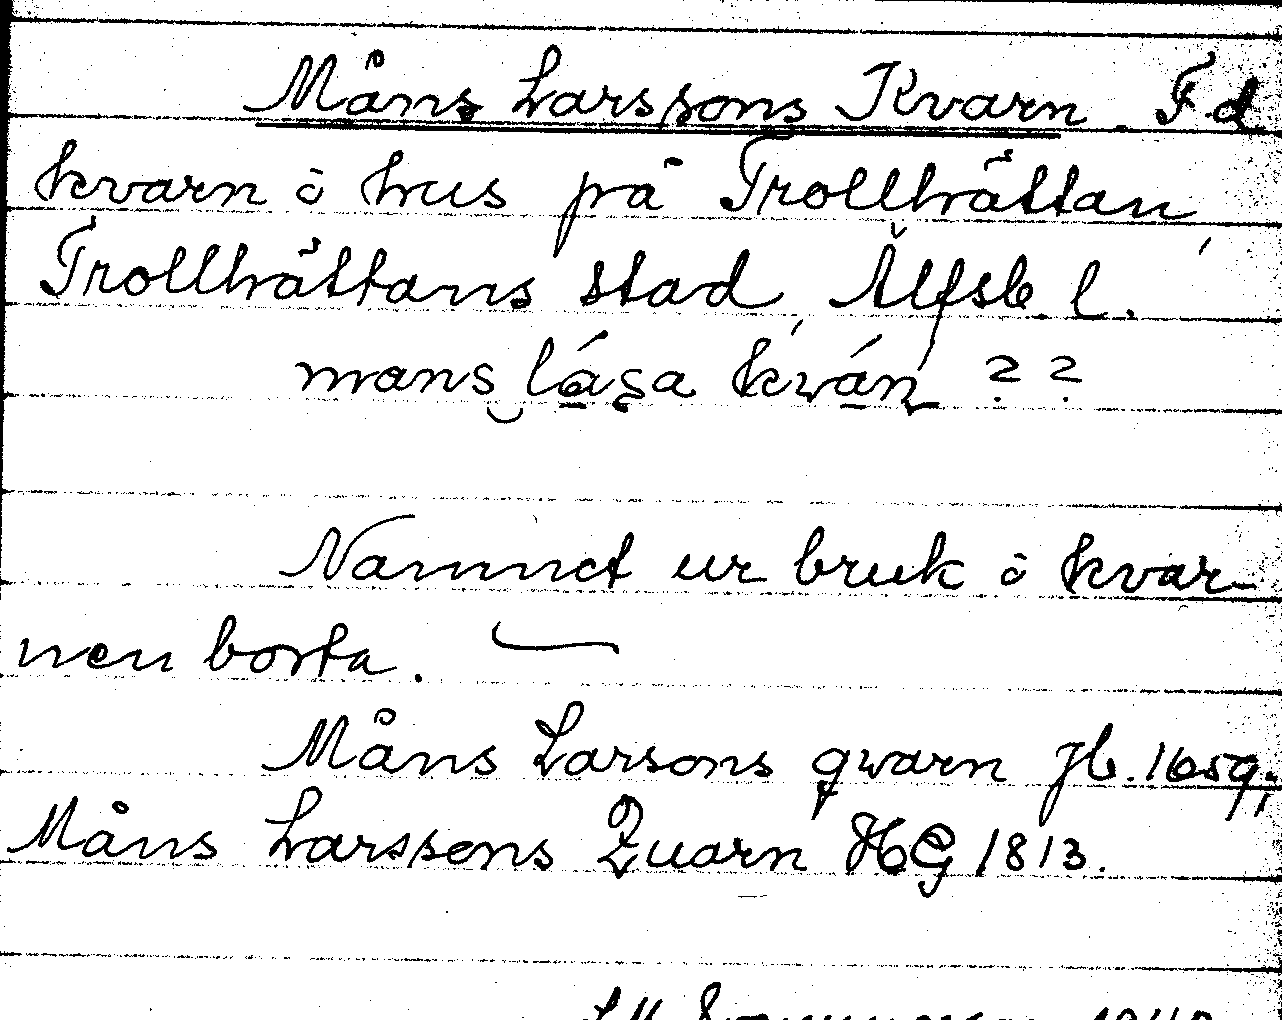 Måns Larssons Kvarn. F.d.
kvarn o hus på Trollhättan,
Trollhättans stad, Älfsb. l.
mans lása kwán ??
Namnet ur bruk o kvar-
nen borta.
Måns Larsons qwarn Jb. 1659;
Måns Larssons Quarn HG 1813.